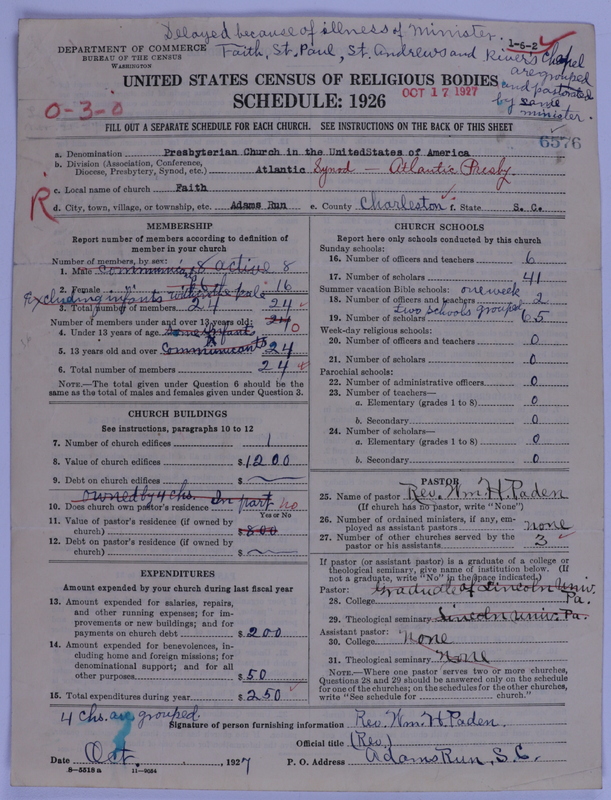 Delayed because of illness of Minister.
1-6-2
Faith, St. Paul, St. Andrews and River's Chapel
are grouped
and pastorated
by same
minister.
DEPARTMENT OF COMMERCE
BUREAU OF THE CENSUS
WASHINGTON
UNITED STATES CENSUS OF RELIGIOUS BODIES
SCHEDULE: 1926
OCT 17 1927
0-3-0
FILL OUT A SEPARATE SCHEDULE FOR EACH CHURCH. SEE INSTRUCTIONS ON THE BACK OF THIS SHEET
6576
a. Denomination Presbyterian Church in the UnitedStates of America
b. Division (Association, Conference, Diocese, Presbytery, Synod, etc.) Atlantic Synod — Atlantic Presby
c. Local name of church Faith
R
d. City, town, village, or township, etc. Adams Run e. County Charleston f. State S. C.
MEMBERSHIP
Report number of members according to definition of
member in your church
Number of members, by sex:
1. Male communica 8 active 8
2. Female 16
Excluding infants within the pale
3. Total number of members 24 24
Number of members under and over 13 years old:
4. Under 13 years of age 0
5. 13 years old and over Communicants 24
6. Total number of members 24
NOTE.—The total given under Question 6 should be the
same as the total of males and females given under Question 3.
CHURCH BUILDINGS
See instructions, paragraphs 10 to 12
7. Number of church edifices 1
8. Value of church edifices $1200
9. Debt on church edifices $
owned by 4 chs. In part no
10. Does church own pastor's residence
Yes or No
11. Value of pastor's residence (if owned by
church) $800
12. Debt on pastor's residence (if owned by
church) $
EXPENDITURES
Amount expended by your church during last fiscal year
13. Amount expended for salaries, repairs,
and other running expenses; for im-
provements or new buildings; and for
payments on church debt $200
14. Amount expended for benevolences, in-
cluding home and foreign missions; for
denominational support; and for all
other purposes $50
15. Total expenditures during year $250
CHURCH SCHOOLS
Report here only schools conducted by this church
Sunday schools:
16. Number of officers and teachers 6
17. Number of scholars 41
Summer vacation Bible schools: one week
18. Number of officers and teachers 2
Two schools grouped
19. Number of scholars 65
Week-day religious schools:
20. Number of officers and teachers 0
21. Number of scholars 0
Parochial schools:
22. Number of administrative officers 0
23. Number of teachers—
a. Elementary (grades 1 to 8) 0
b. Secondary 0
24. Number of scholars—
a. Elementary (grades 1 to 8) 0
b. Secondary 0
PASTOR
25. Name of pastor Rev. Wm. H. Paden
(If church has no pastor, write "None")
26. Number of ordained ministers, if any, em-
ployed as assistant pastors none
27. Number of other churches served by the
pastor or his assistants 3
If pastor (or assistant pastor) is a graduate of a college or
theological seminary, give name of institution below. (If
not a graduate, write "No" in the space indicated.)
Pastor: Graduate of Lincoln Univ.
28. College Pa.
29. Theological seminary Lincoln Univ. Pa.
Assistant pastor:
30. College None
31. Theological seminary None
NOTE.—Where one pastor serves two or more churches,
Questions 28 and 29 should be answered only on the schedule
for one of the churches; on the schedules for the other churches,
write "See schedule for church."
4 chs. are grouped.
Signature of person furnishing information Rev. Wm. H. Paden.
Official title (Rev.)
Date Oct. , 1927 P. O. Address Adams Run, S.C.
8—5518 a 11—9034